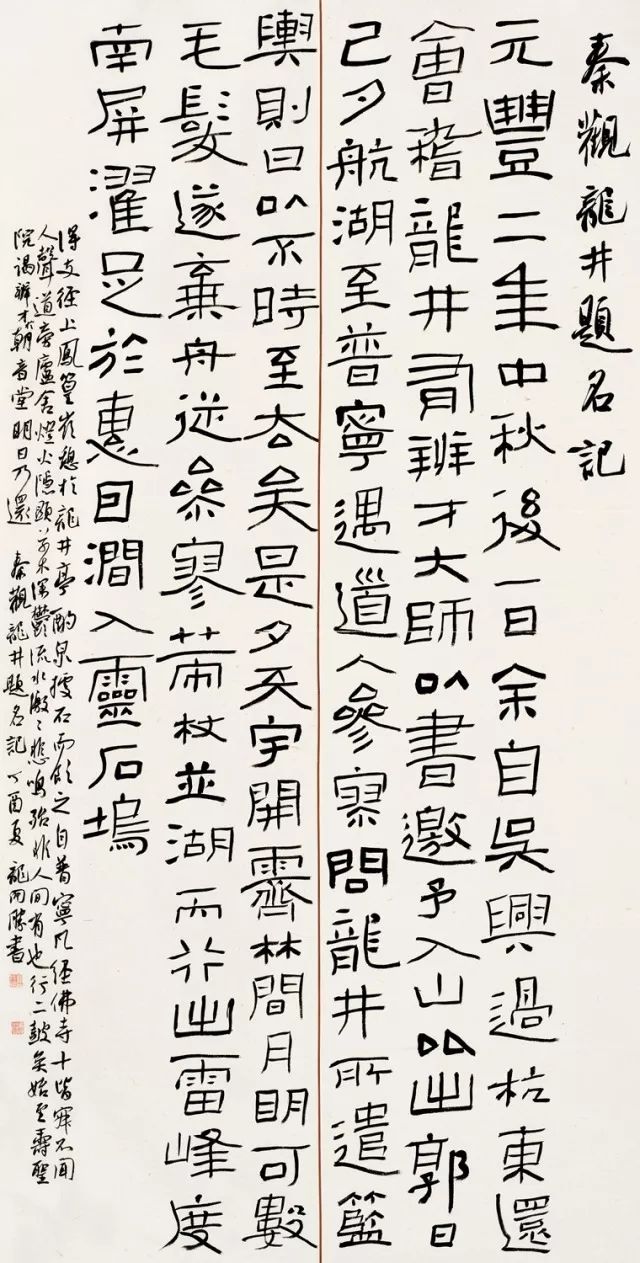 秦觀龍井題名記
元豐二年中秋後一日余自吳興過杭東還
會稽龍井有辨才大師以書邀予入山比出郭日
已夕航湖至普寧遇道人參寥問龍井所遣籃
輿則曰以不時至去矣是夕天宇開霽林間月明可數
毛髮遂棄舟從參寥策杖並湖而行出雷峰度
南屏濯足於惠因澗入靈石塢
得支徑上鳳篁嶺憩於龍井亭酌泉據石而飲之自普寧凡經佛寺十皆寂不聞
人聲道旁廬舍燈火隱顯草木深鬱流水激々悲鳴殆非人間有也行二鼓矣始至壽聖
院謁辨才朝音堂明日乃還 秦觀龍井題名記 丁酉夏 龍開勝書